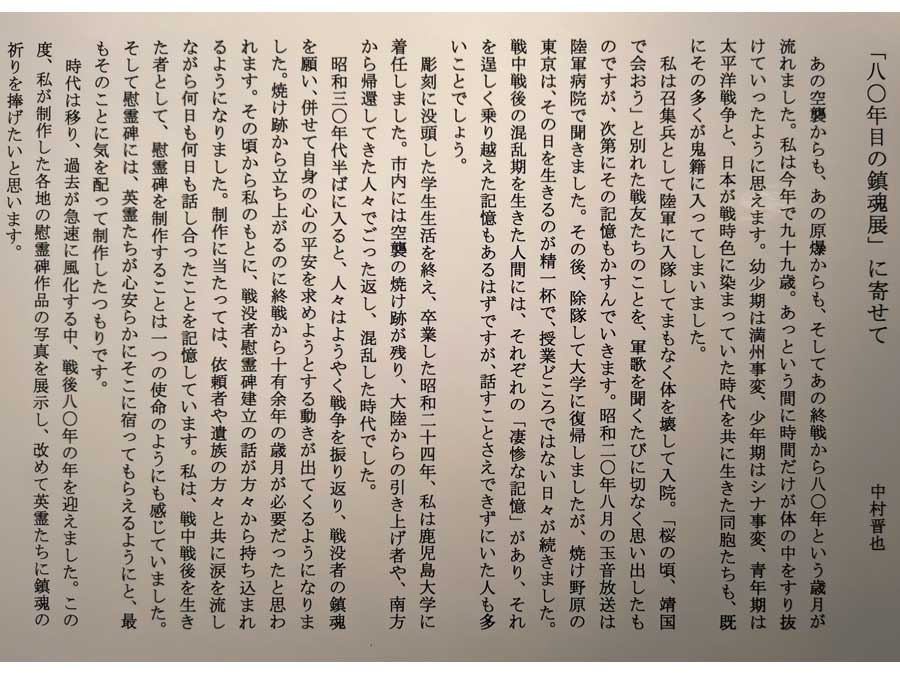 「八〇年目の鎮魂展」に寄せて
中村晋也
あの空襲からも、あの原爆からも、そしてあの終戦から八〇年という歳月が
流れました。私は今年で九十九歳。あっという間に時間だけが体の中をすり抜
けていったように思えます。幼少期は満州事変、少年期はシナ事変、青年期は
太平洋戦争と、日本が戦時色に染まっていた時代を共に生きた同胞たちも、既
にその多くが鬼籍に入ってしまいました。
私は召集兵として陸軍に入隊してまもなく体を壊して入院。「桜の頃、靖国
で会おう」と別れた戦友たちのことを、軍歌を聞くたびに切なく思い出したも
のですが、次第にその記憶もかすんでいきます。昭和二〇年八月の玉音放送は
陸軍病院で聞きました。その後、除隊して大学に復帰しましたが、焼け野原の
東京は、その日を生きるのが精一杯で、授業どころではない日々が続きました。
戦中戦後の混乱期を生きた人間には、それぞれの「凄惨な記憶」があり、それ
を逞しく乗り越えた記憶もあるはずですが、話すことさえできずにいた人も多
いことでしょう。
彫刻に没頭した学生生活を終え、卒業した昭和二十四年、私は鹿児島大学に
着任しました。市内には空襲の焼け跡が残り、大陸からの引き上げ者や、南方
から帰還してきた人々でごった返し、混乱した時代でした。
昭和三〇年代半ばに入ると、人々はようやく戦争を振り返り、戦没者の鎮魂
を願い、併せて自身の心の平安を求めようとする動きが出てくるようになりま
した。焼け跡から立ち上がるのに終戦から十有余年の歳月が必要だったと思わ
れます。その頃から私のもとに、戦没者慰霊碑建立の話が方々から持ち込まれ
るようになりました。制作に当たっては、依頼者や遺族の方々と共に涙を流し
ながら何日も何日も話し合ったことを記憶しています。私は、戦中戦後を生き
た者として、慰霊碑を制作することは一つの使命のようにも感じていました。
そして慰霊碑には、英霊たちが心安らかにそこに宿ってもらえるようにと、最
もそのことに気を配って制作したつもりです。
時代は移り、過去が急速に風化する中、戦後八〇年の年を迎えました。この
度、私が制作した各地の慰霊碑作品の写真を展示し、改めて英霊たちに鎮魂の
祈りを捧げたいと思います。